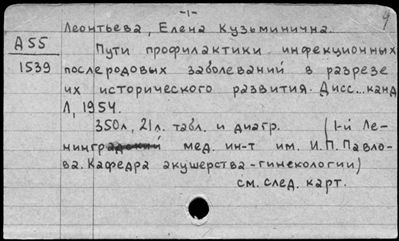 -1-
9
Леонтьева, Елена Кузьминична.
А55
1539
Пути профилактики инфекционных
послеродовых заболеваний в разрезе
их исторического развития. Дисс... канд
Л, 1954.
350л, 21л. табл. и диагр. (1-й Ле-
нинградский мед. ин-т им. И.П. Павло-
ва. Кафедра акушерства-гинекологии)
см. след. карт.